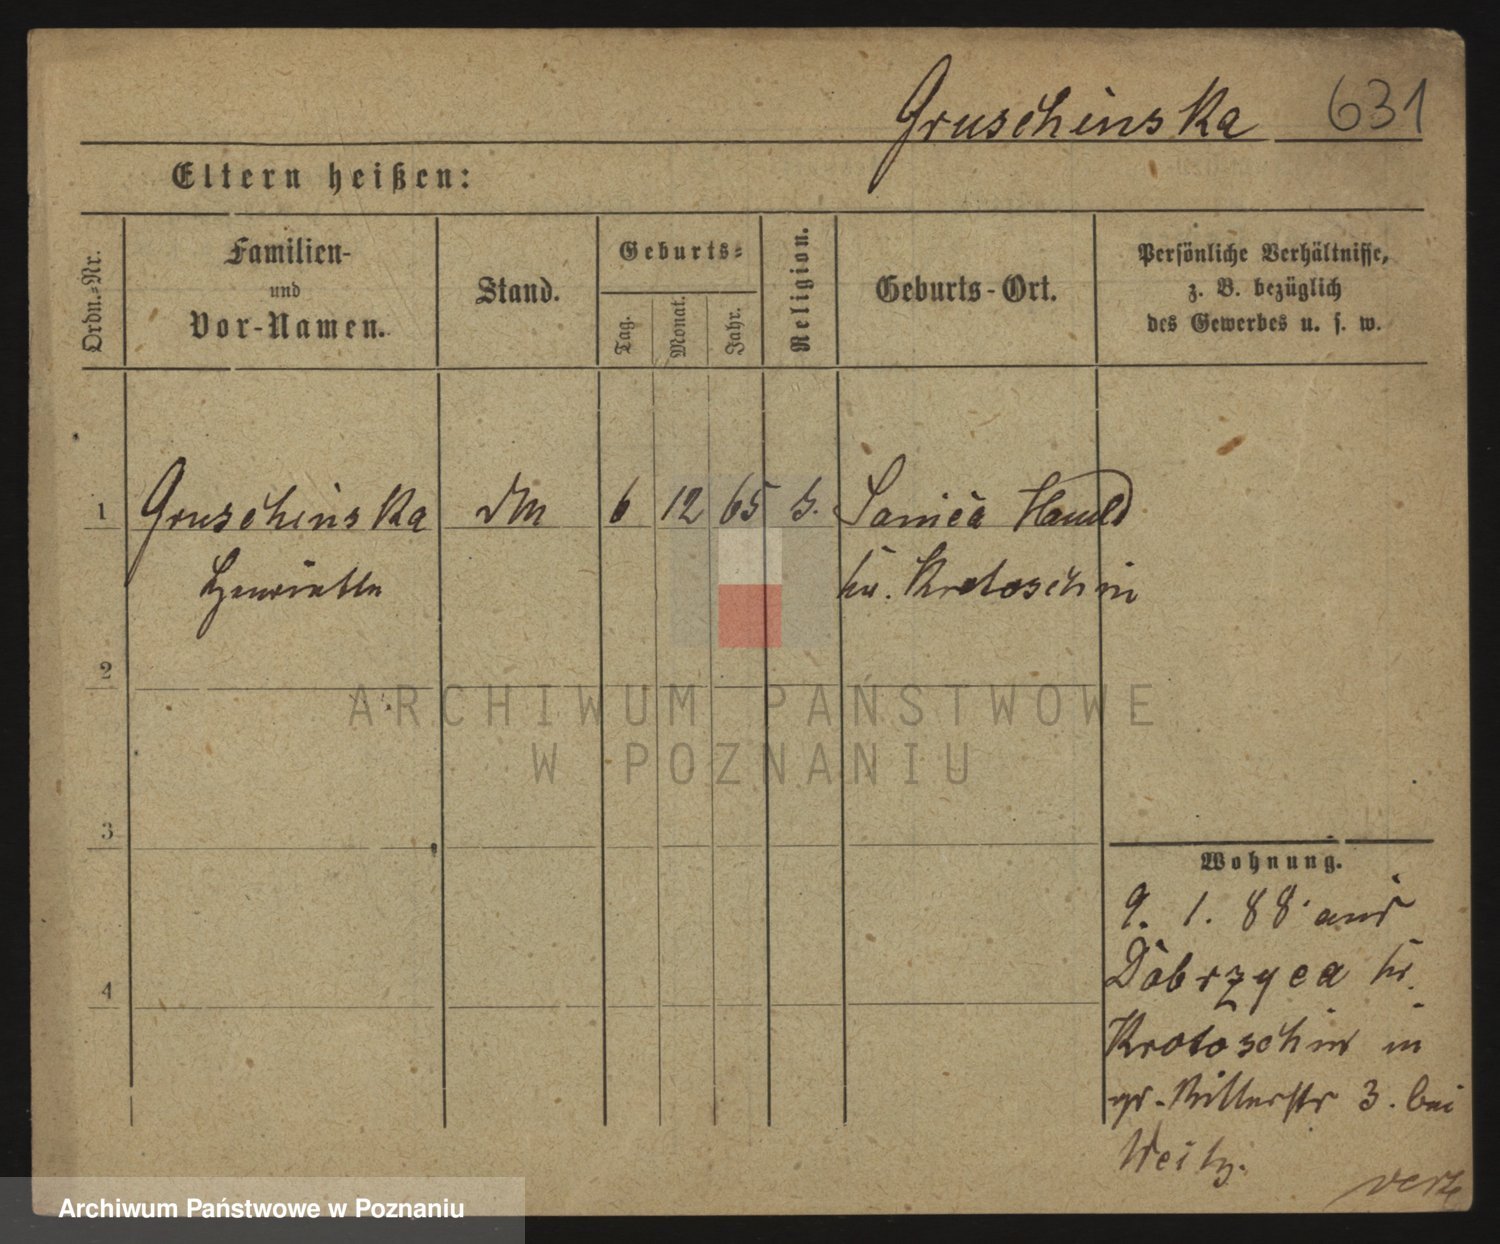 Gruschinska 631
Eltern heißen:
Ordn.-Nr.
Familien-
und
Vor-Namen.
Stand.
Geburts-
Tag.
Monat.
Jahr.
Religion.
Geburts-Ort.
Persönliche Verhältnisse,
z. B. bezüglich
des Gewerbes u. s. w.
1 Gruschinska 6 12 65
Henriette
Kr. Krotoschin
2
3
4
Wohnung.
9. 1. 88 aus
Dobrzyca Kr.
Krotoschin in
gr. Ritterstr 3. bei
Weitz.
ARCHIWUM PAŃSTWOWE
W POZNANIU
Archiwum Państwowe w Poznaniu